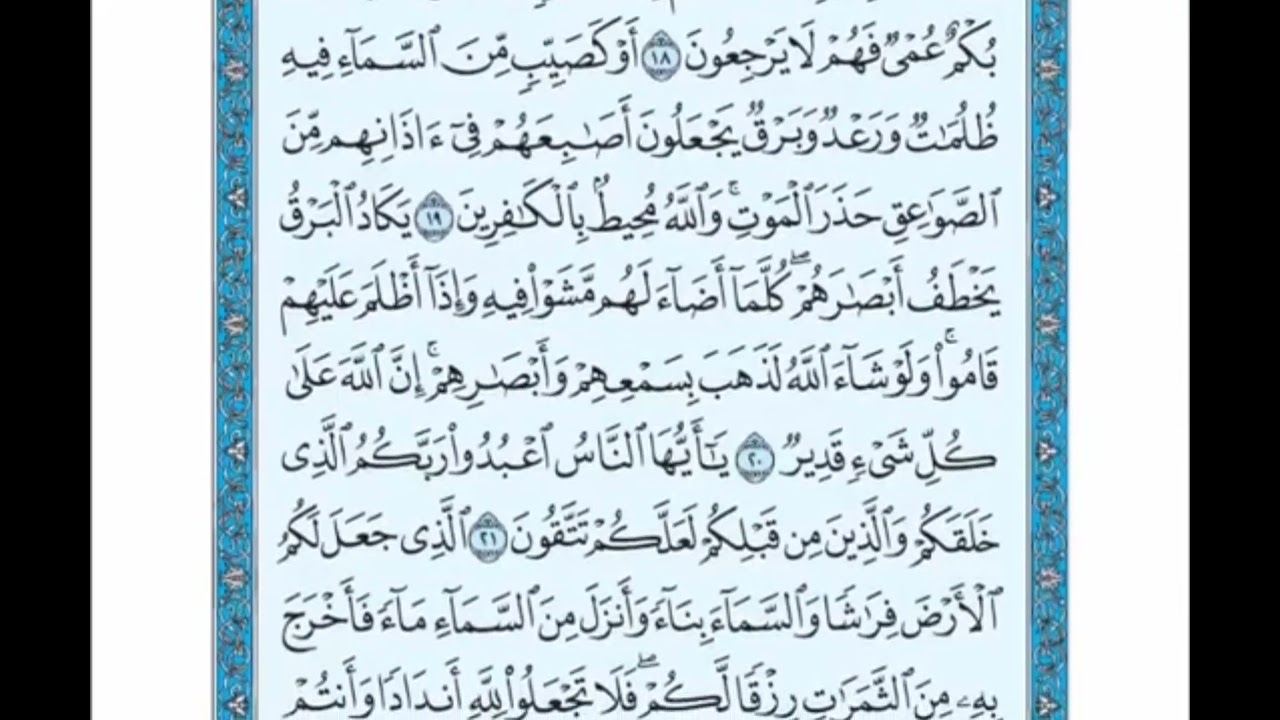 بُكْمٌ عُمْىٌ فَهُمْ لَا يَرْجِعُونَ ١٨ أَوْ كَصَيِّبٍ مِّنَ ٱلسَّمَآءِ فِيهِ
ظُلُمَٰتٌ وَرَعْدٌ وَبَرْقٌ يَجْعَلُونَ أَصَٰبِعَهُمْ فِىٓ ءَاذَانِهِم مِّنَ
ٱلصَّوَٰعِقِ حَذَرَ ٱلْمَوْتِ ۚ وَٱللَّهُ مُحِيطٌۢ بِٱلْكَٰفِرِينَ ١٩ يَكَادُ ٱلْبَرْقُ
يَخْطَفُ أَبْصَٰرَهُمْ ۖ كُلَّمَآ أَضَآءَ لَهُم مَّشَوْا۟ فِيهِ وَإِذَآ أَظْلَمَ عَلَيْهِمْ
قَامُوا۟ ۚ وَلَوْ شَآءَ ٱللَّهُ لَذَهَبَ بِسَمْعِهِمْ وَأَبْصَٰرِهِمْ ۚ إِنَّ ٱللَّهَ عَلَىٰ
كُلِّ شَىْءٍ قَدِيرٌ ٢٠ يَٰٓأَيُّهَا ٱلنَّاسُ ٱعْبُدُوا۟ رَبَّكُمُ ٱلَّذِى
خَلَقَكُمْ وَٱلَّذِينَ مِن قَبْلِكُمْ لَعَلَّكُمْ تَتَّقُونَ ٢١ ٱلَّذِى جَعَلَ لَكُمُ
ٱلْأَرْضَ فِرَٰشًا وَٱلسَّمَآءَ بِنَآءً وَأَنزَلَ مِنَ ٱلسَّمَآءِ مَآءً فَأَخْرَجَ
بِهِۦ مِنَ ٱلثَّمَرَٰتِ رِزْقًا لَّكُمْ ۖ فَلَا تَجْعَلُوا۟ لِلَّهِ أَندَادًا وَأَنتُمْ